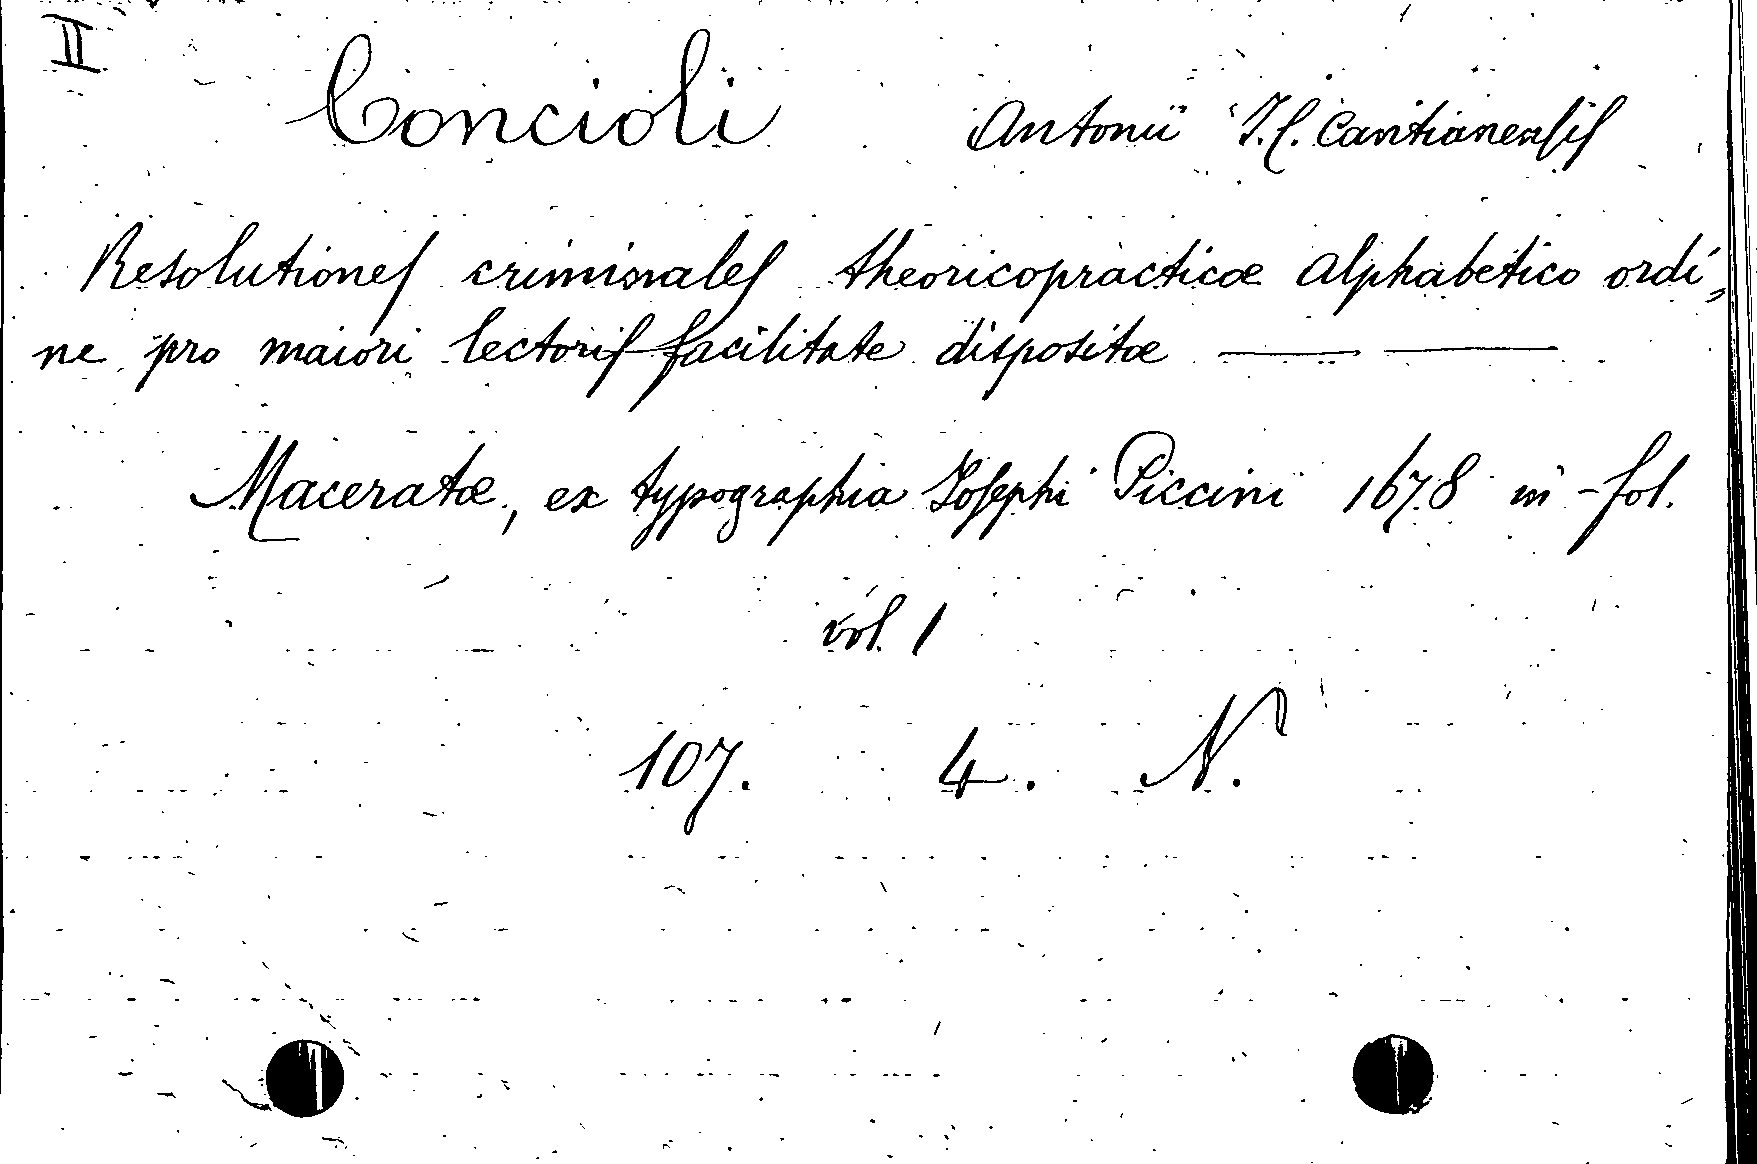 II
Concioli Antonii J.C. Cantianensis
Resolutiones criminales theoricopracticæ alphabetico ordi„
ne pro maiori lectoris facilitate dispositæ — —
Maceratæ, ex typographia Josephi Piccini 1678 in-fol.
vol. 1
107. 4. N.